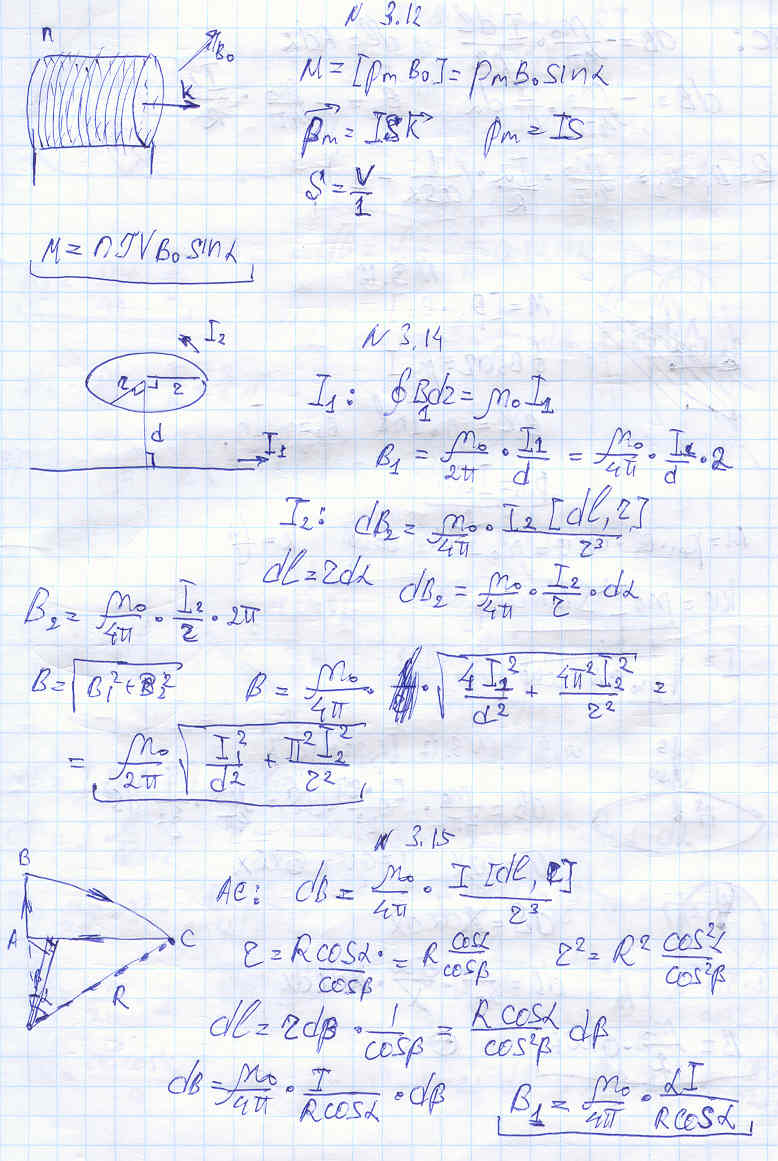 N 3.12
n
B₀
k
M = [pₘ B₀] = pₘB₀sinα
p⃗ₘ = ISk⃗ pₘ = IS
S = V/1
M = nIVB₀ sinα
N 3.14
I₂
r r
d
I₁
I₁: ∮B₁dr = μ₀I₁
B₁ = μ₀/2π · I₁/d = μ₀/4π · I₁/d · 2
I₂: dB₂ = μ₀/4π · I₂ [dl, r]/r³
dl = rdα dB₂ = μ₀/4π · I₂/r · dα
B₂ = μ₀/4π · I₂/r · 2π
B = √(B₁² + B₂²) B = μ₀/4π · √(4I₁²/d² + 4π²I₂²/r²) =
= μ₀/2π √(I₁²/d² + π²I₂²/r²)
N 3.15
B
A
C
R
AC: dB = μ₀/4π · I [dl, r]/r³
r = Rcosα·/cosβ = R cosα/cosβ r² = R² cos²α/cos²β
dl = rdβ · 1/cosβ = Rcosα/cos²β dβ
dB = μ₀/4π · I/Rcosα · dβ
B₁ = μ₀/4π · αI/Rcosα